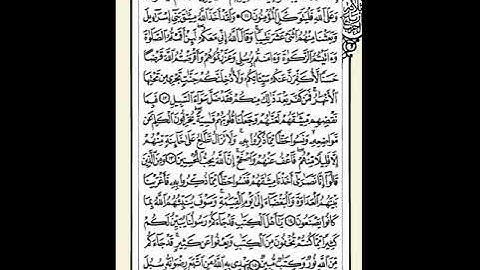 وَعَلَى ٱللَّهِ فَلْيَتَوَكَّلِ ٱلْمُؤْمِنُونَ وَلَقَدْ أَخَذَ ٱللَّهُ مِيثَٰقَ بَنِىٓ إِسْرَٰٓءِيلَ
وَبَعَثْنَا مِنْهُمُ ٱثْنَىْ عَشَرَ نَقِيبًا وَقَالَ ٱللَّهُ إِنِّى مَعَكُمْ لَئِنْ أَقَمْتُمُ ٱلصَّلَوٰةَ
وَءَاتَيْتُمُ ٱلزَّكَوٰةَ وَءَامَنتُم بِرُسُلِى وَعَزَّرْتُمُوهُمْ وَأَقْرَضْتُمُ ٱللَّهَ قَرْضًا
حَسَنًا لَّأُكَفِّرَنَّ عَنكُمْ سَيِّـَٔاتِكُمْ وَلَأُدْخِلَنَّكُمْ جَنَّٰتٍ تَجْرِى مِن تَحْتِهَا
ٱلْأَنْهَٰرُ فَمَن كَفَرَ بَعْدَ ذَٰلِكَ مِنكُمْ فَقَدْ ضَلَّ سَوَآءَ ٱلسَّبِيلِ فَبِمَا
نَقْضِهِم مِّيثَٰقَهُمْ لَعَنَّٰهُمْ وَجَعَلْنَا قُلُوبَهُمْ قَٰسِيَةً يُحَرِّفُونَ ٱلْكَلِمَ عَن
مَّوَاضِعِهِۦ وَنَسُوا۟ حَظًّا مِّمَّا ذُكِّرُوا۟ بِهِۦ وَلَا تَزَالُ تَطَّلِعُ عَلَىٰ خَآئِنَةٍ مِّنْهُمْ
إِلَّا قَلِيلًا مِّنْهُمْ فَٱعْفُ عَنْهُمْ وَٱصْفَحْ إِنَّ ٱللَّهَ يُحِبُّ ٱلْمُحْسِنِينَ وَمِنَ ٱلَّذِينَ
قَالُوٓا۟ إِنَّا نَصَٰرَىٰٓ أَخَذْنَا مِيثَٰقَهُمْ فَنَسُوا۟ حَظًّا مِّمَّا ذُكِّرُوا۟ بِهِۦ فَأَغْرَيْنَا
بَيْنَهُمُ ٱلْعَدَاوَةَ وَٱلْبَغْضَآءَ إِلَىٰ يَوْمِ ٱلْقِيَٰمَةِ وَسَوْفَ يُنَبِّئُهُمُ ٱللَّهُ بِمَا
كَانُوا۟ يَصْنَعُونَ يَٰٓأَهْلَ ٱلْكِتَٰبِ قَدْ جَآءَكُمْ رَسُولُنَا يُبَيِّنُ لَكُمْ
كَثِيرًا مِّمَّا كُنتُمْ تُخْفُونَ مِنَ ٱلْكِتَٰبِ وَيَعْفُوا۟ عَن كَثِيرٍ قَدْ جَآءَكُم
مِّنَ ٱللَّهِ نُورٌ وَكِتَٰبٌ مُّبِينٌ يَهْدِى بِهِ ٱللَّهُ مَنِ ٱتَّبَعَ رِضْوَٰنَهُۥ سُبُلَ